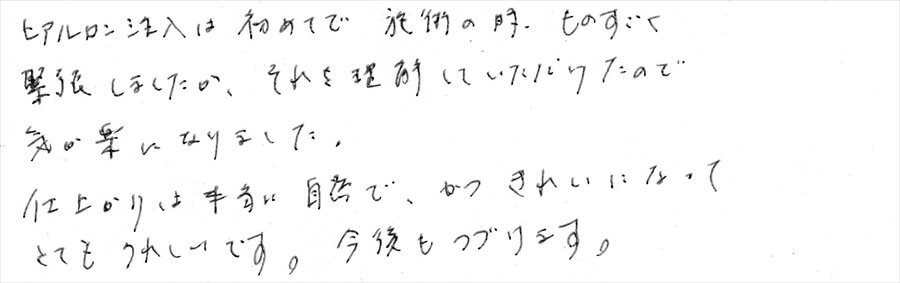 ヒアルロン注入は初めてで 施術の時、ものすごく
緊張しましたが、それを理解していただけたので
気が楽になりました。
仕上がりは本当に自然で、かつ きれいになって
とても うれしいです。今後も つづけます。